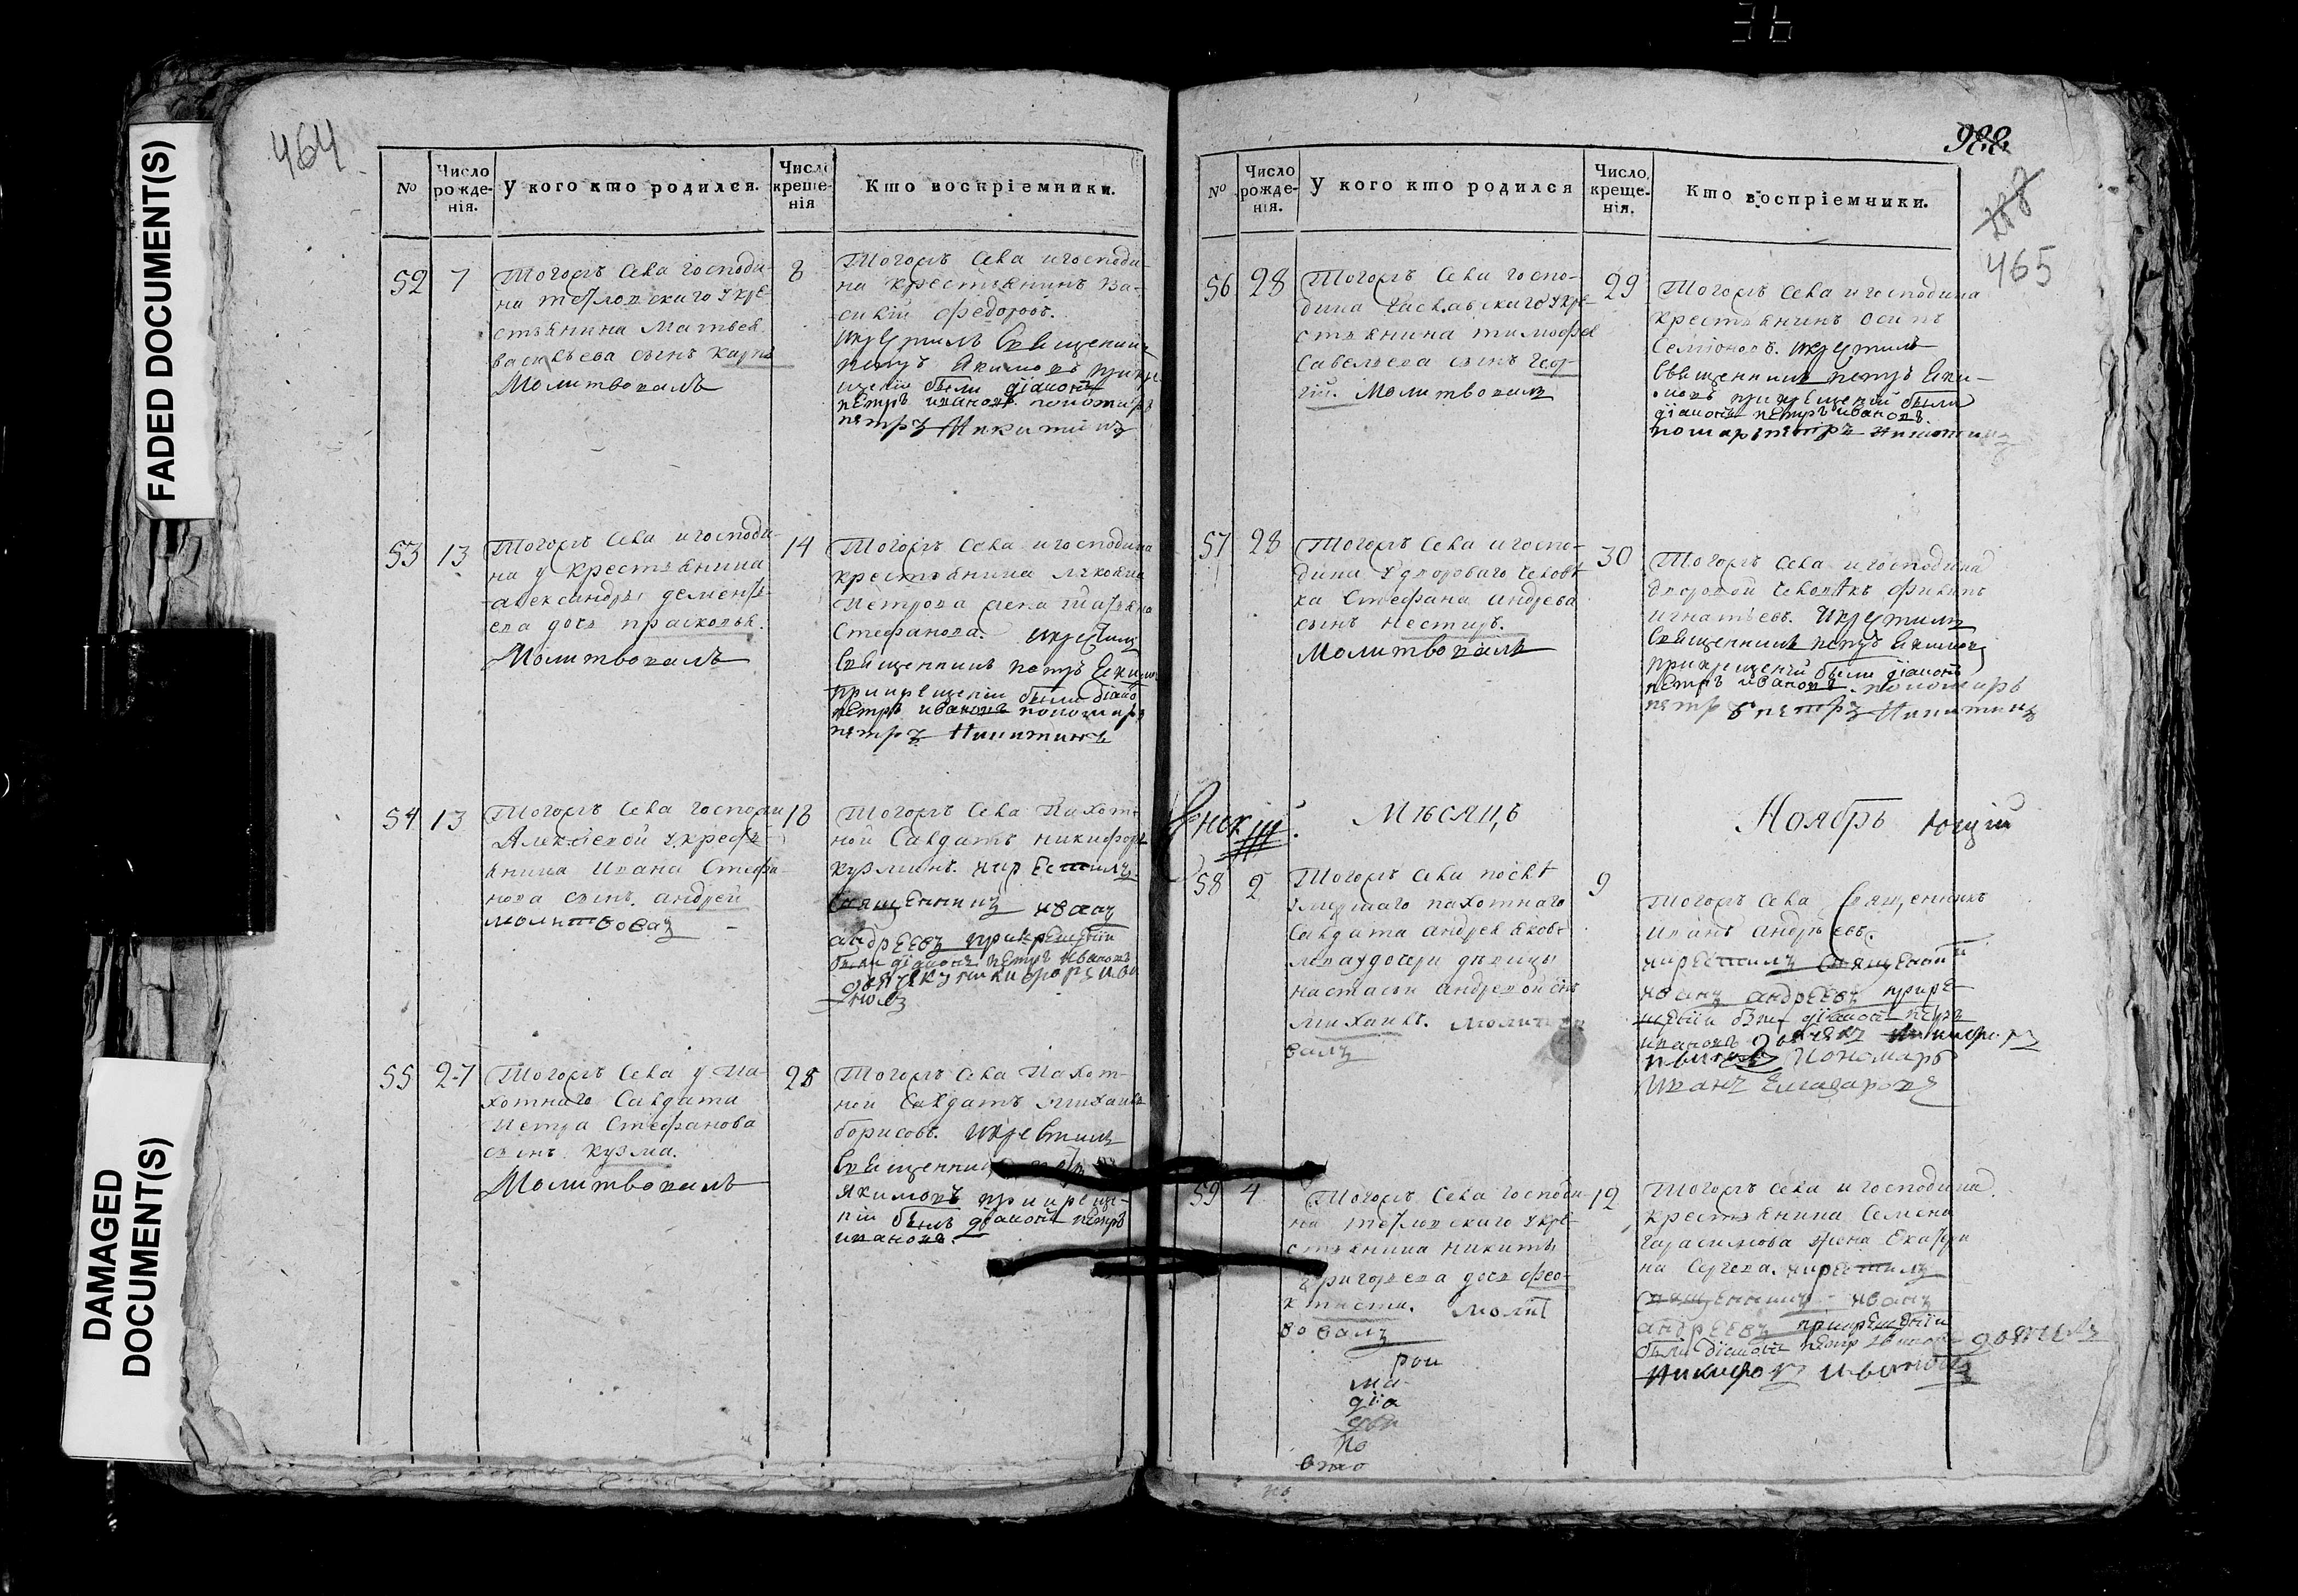 36
FADED DOCUMENT(S)
DAMAGED
DOCUMENT(S)
464
№
Число рожде-нія.
У кого кто родился.
Число креще-нія
Кто воспріемники.
52 7
Тогожъ Села господи-
на
стьянина Матвея
васильева сынъ карпъ
Молитвовалъ
8
Тогожъ Села игосподи-
на крестьянинъ Ва-
силій Федоровъ.
Священникъ
петръ Якимовъ
были діаконъ
петръ ивановъ пономарь
петръ Никитинъ
53 13
Тогожъ Села игосподи-
на у крестьянина
александры дементь-
ева дочь прасковья.
Молитвовалъ
14
Тогожъ Села игосподина
крестьянина
петрова жена
Стефанова. икрестилъ
Священникъ петръ Якимовъ
прикрещеніи были діаконъ
петръ ивановъ пономарь
петръ Никитинъ
54 13
Тогожъ Села господи
Алексіевой укресть-
янина Ивана Стефа-
нова сынъ андрей
молитвовалъ
18
Тогожъ Села Пахот-
ной Салдатъ никифоръ
кузминъ. икрестилъ
Священникъ иванъ
андреевъ прикрещеніи
были діаконъ петръ ивановъ
дьячекъ никифоръ ива
новъ
55 27
Тогожъ Села у Па-
хотнаго Салдата
петра Стефанова
сынъ кузма.
Молитвовалъ
28
Тогожъ Села Пахот-
ной Салдатъ михаила
борисовъ. икрестилъ
Священникъ
Якимовъ прикреще-
ніи былъ діаконъ петръ
ивановъ.
988
465
№
Число рожде-нія.
У кого кто родился
Число креще-нія.
Кто воспріемники.
56 28
Тогожъ Села госпо-
дина
стьянина тимофея
Савельева сынъ геор-
гій. Молитвовалъ
29
Тогожъ Села игосподина
крестьянинъ осипъ
Семіоновъ. икрестилъ
Священникъ петръ Яки-
мовъ прикрещеніи были
діаконъ петръ ивановъ
петръ Никитинъ
57 28
Тогожъ Села игоспо-
дина удвороваго челове
ка Стефана андреева
сынъ нестиръ.
Молитвовалъ
30
Тогожъ Села игосподина
дворовой человекъ филипъ
игнатьевъ. икрестилъ
Священникъ петръ Якимовъ
прикрещеніи были діаконъ
петръ ивановъ пономарь
петръ петръ Никитинъ
Мѣсяцъ
Ноябрь
58 2
Тогожъ Села послѣ
умершаго пахотнаго
Салдата андрея яков-
лева удочери девицы
настасьи андревой сынъ
михаилъ. молитво
валъ
9
Тогожъ Села Священникъ
иванъ андреевъ.
икрестилъ священникъ
иванъ андреевъ прикре-
щеніи были діаконъ петръ
ивановъ дьячекъ никифоръ
ивановъ Пономарь
иванъ Елиазаровъ
59 4
Тогожъ Села господи
на
стьянина никиты
григорева дочь фео-
ктиста. молит
вовалъ
рои
ма
діа
дьи
по
вто
12
Тогожъ Села игосподина
крестьянина Семена
Герасимова жена Екатери
на Сергева. икрестилъ
священникъ иванъ
андреевъ прикрещеніи
были діаконъ петръ ивановъ дьячекъ
никифоръ ивановъ